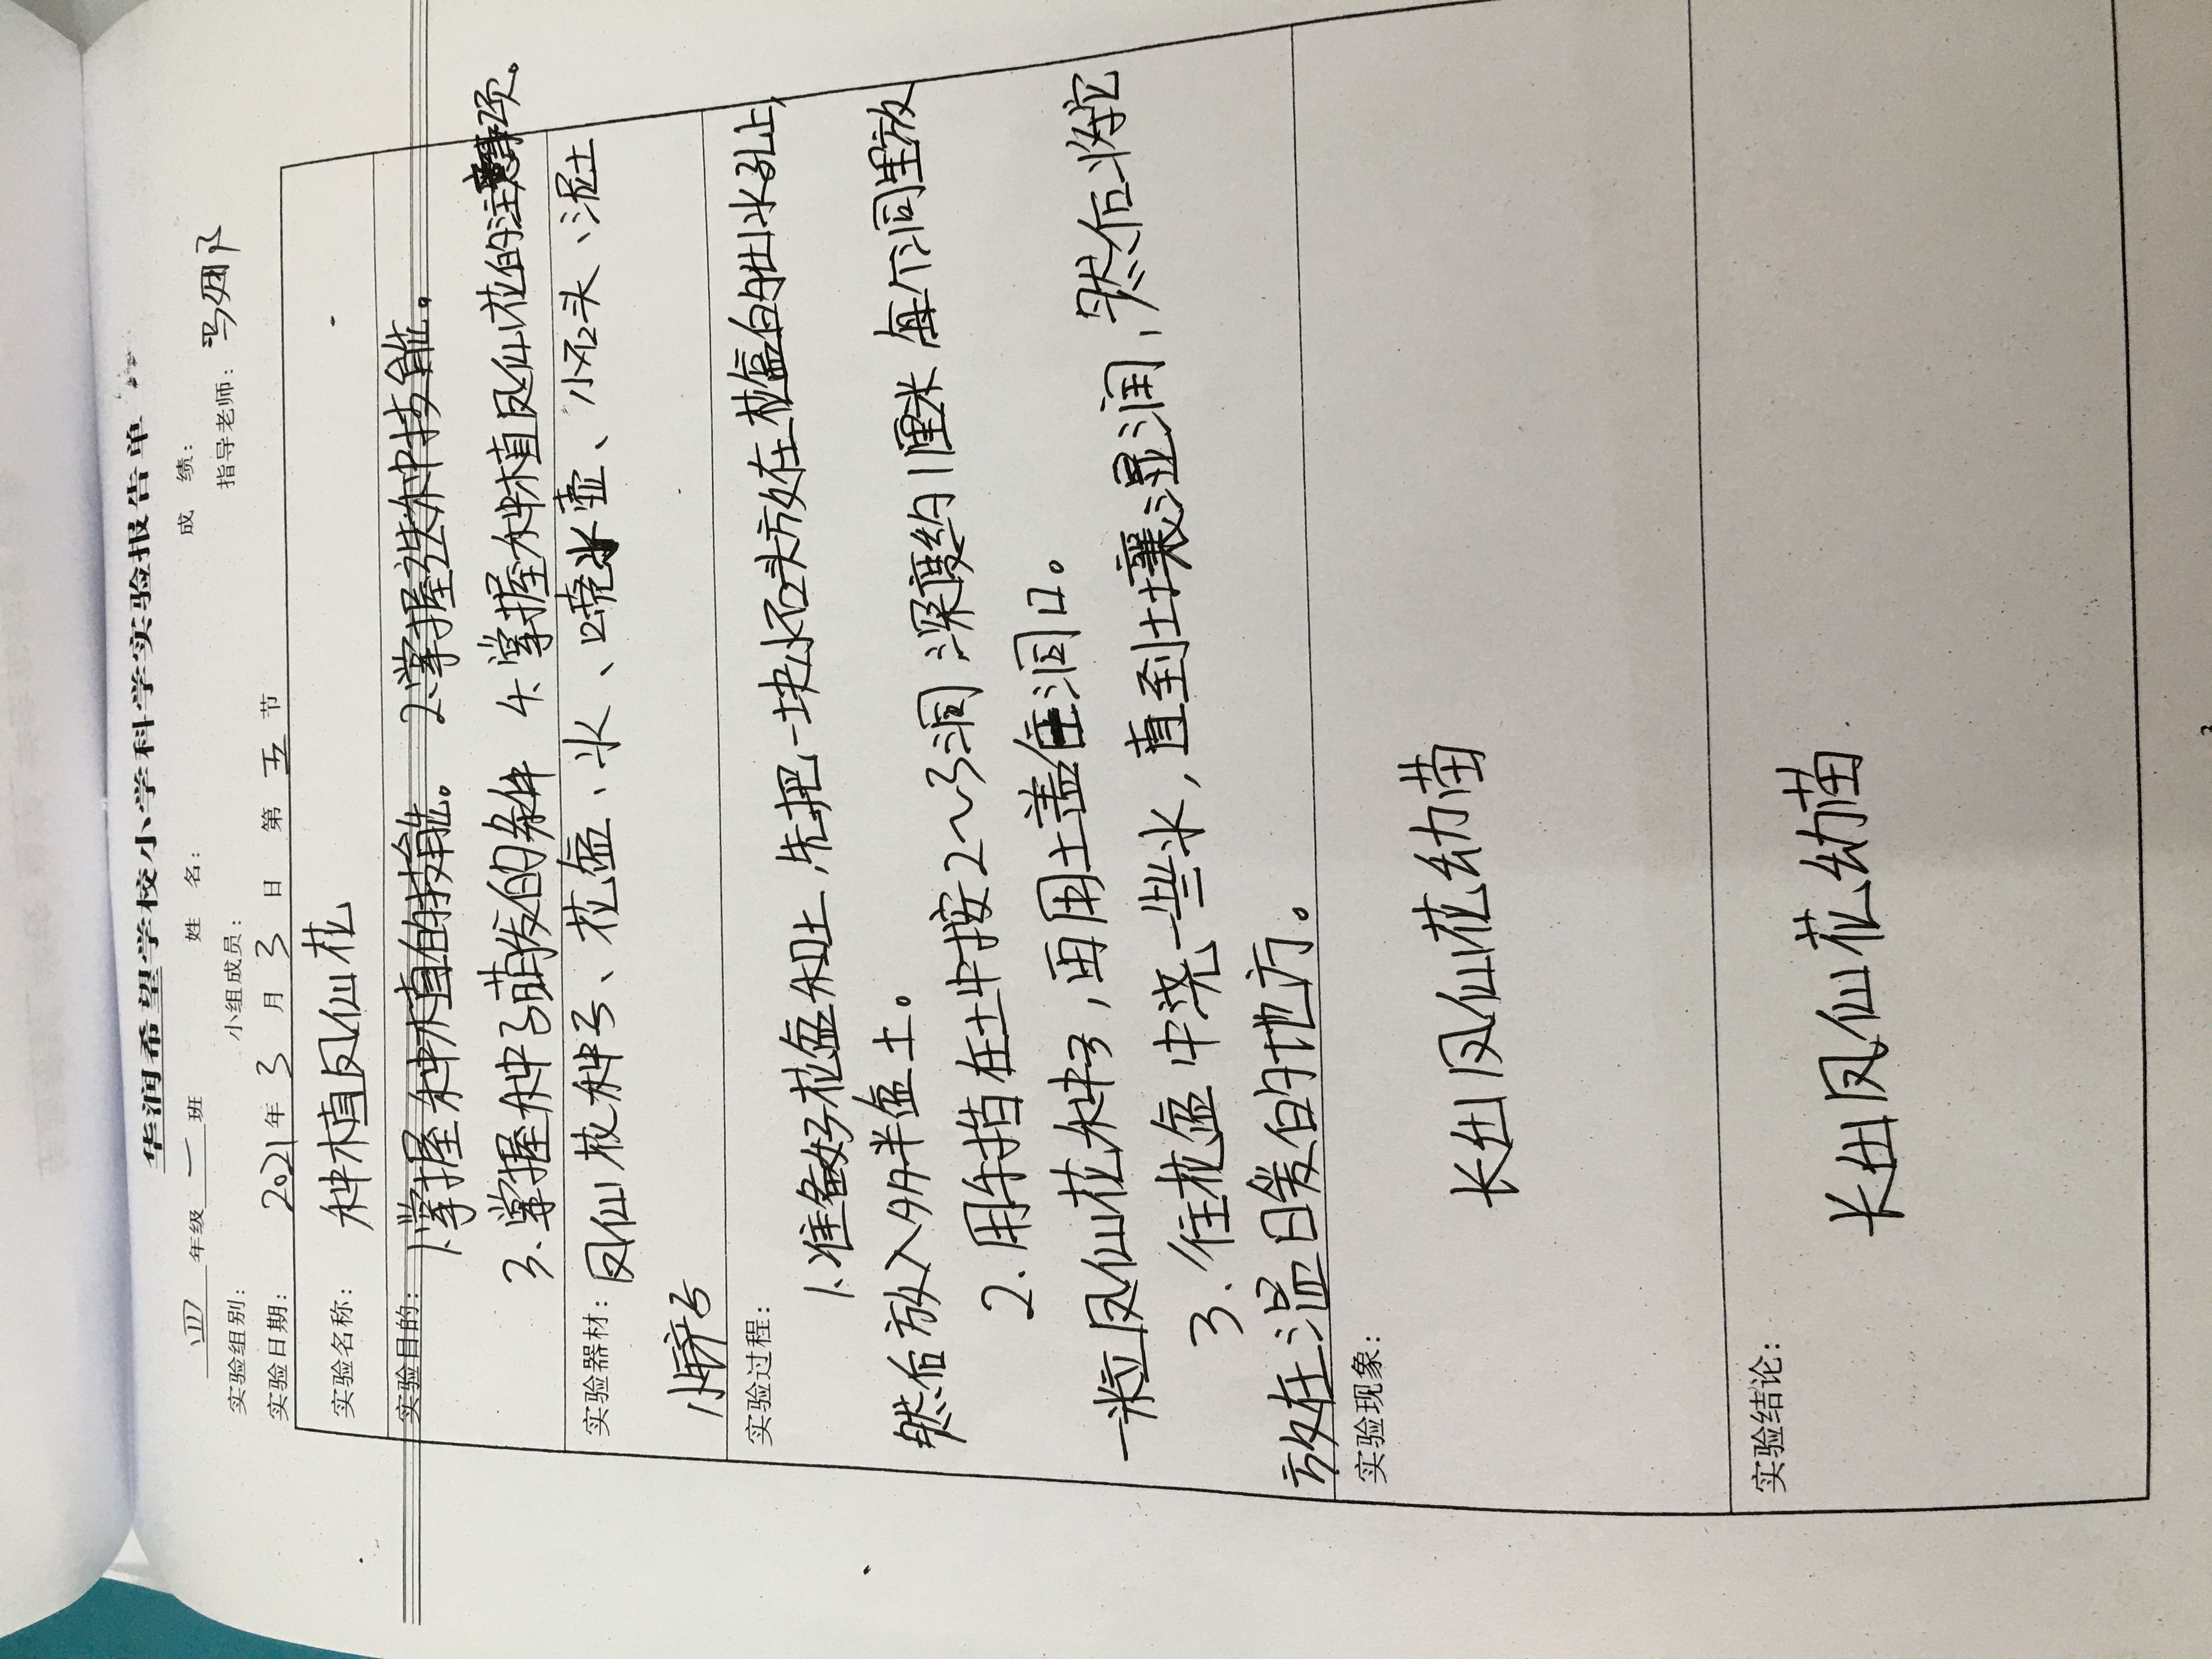 华润希望学校小学科学实验报告单
四 年级 一 班 姓 名： 成 绩：
实验组别： 小组成员： 指导老师：
实验日期： 2021 年 3 月 3 日 第 五 节
实验名称： 种植凤仙花
实验目的： 1.掌握种植的技能。 2.掌握法种技能。
3.掌握种子萌发的条件 4.掌握种植凤仙花的注意事项。
实验器材： 凤仙花种子、花盆、水、喷水壶、小石头、泥土
小铲子
实验过程： 1.准备好花盆和土，先把一块小石头放在花盆的出水孔上，
然后放入多半盆土。
2.用手指在土中按2~3洞 深度约1厘米 每个洞里放
一粒凤仙花种子，再用土盖住洞口。
3、往花盆中浇一些水，直到土壤湿润，然后将它
放在温暖的地方。
实验现象：
长出凤仙花幼苗
实验结论：
长出凤仙花幼苗